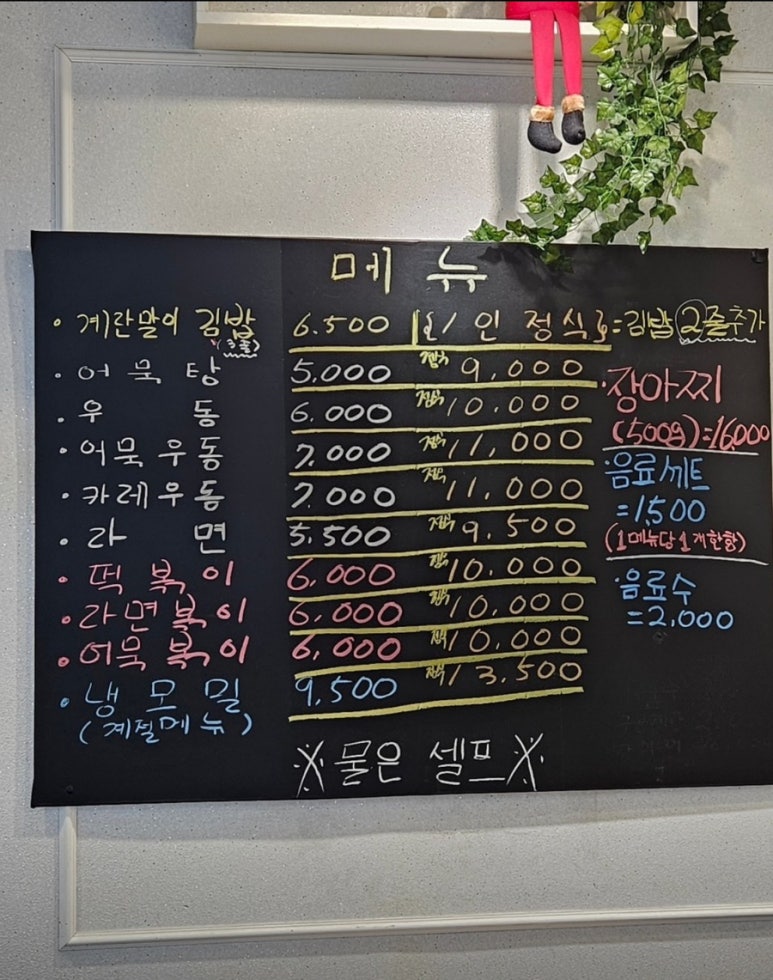 메 뉴
· 계란말이 김밥 6.500 {1 인 정식} = 김밥 ②줄추가
(3줄)
· 어 묵 탕 5.000 정식 9,000
· 우 동 6.000 정식 10.000
· 어묵우동 7.000 정식 11,000
· 카레우동 7.000 정식 11.000
· 라 면 5.500 정식 9.500
· 떡 볶 이 6,000 정식 10.000
· 라면볶이 6,000 정식 10,000
· 어묵볶이 6,000 정식 10,000
· 냉 모 밀 9,500 정식 13.500
(계절메뉴)
· 장아찌
(500g)=16,000
· 음료세트
=1,500
(1메뉴당 1개 한함)
· 음료수
=2,000
※ 물은 셀프 ※